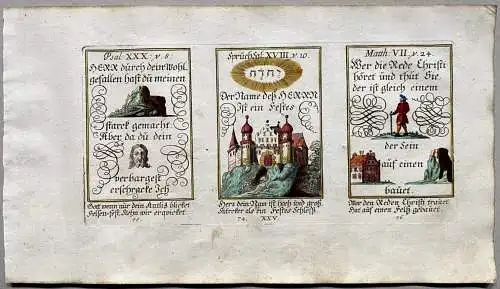 Psal. XXX. v. 8.
HERR durch dein Wohl
gefallen hast du meinen
starck gemacht
Aber da du dein
verbargest
erschracke Ich.
Gott wenn nur dein Antlitz blicket
Felsen-fest, Kohn wir erquicket
Sprüch Sal. XVIII. v. 10.
יהוה
Der Name deß HERRN
Ist ein Festes
Herr dein Nam ist hoch und groß
Stärcker als ein Festes Schloß
74. XXV.
Matth. VII. v. 24.
Wer die Rede Christi
höret und thut Sie
der ist gleich einem
der Sein
auf einen
bauet.
Wer den Reden Christi trauet
Hat auf einen Felß gebauet.